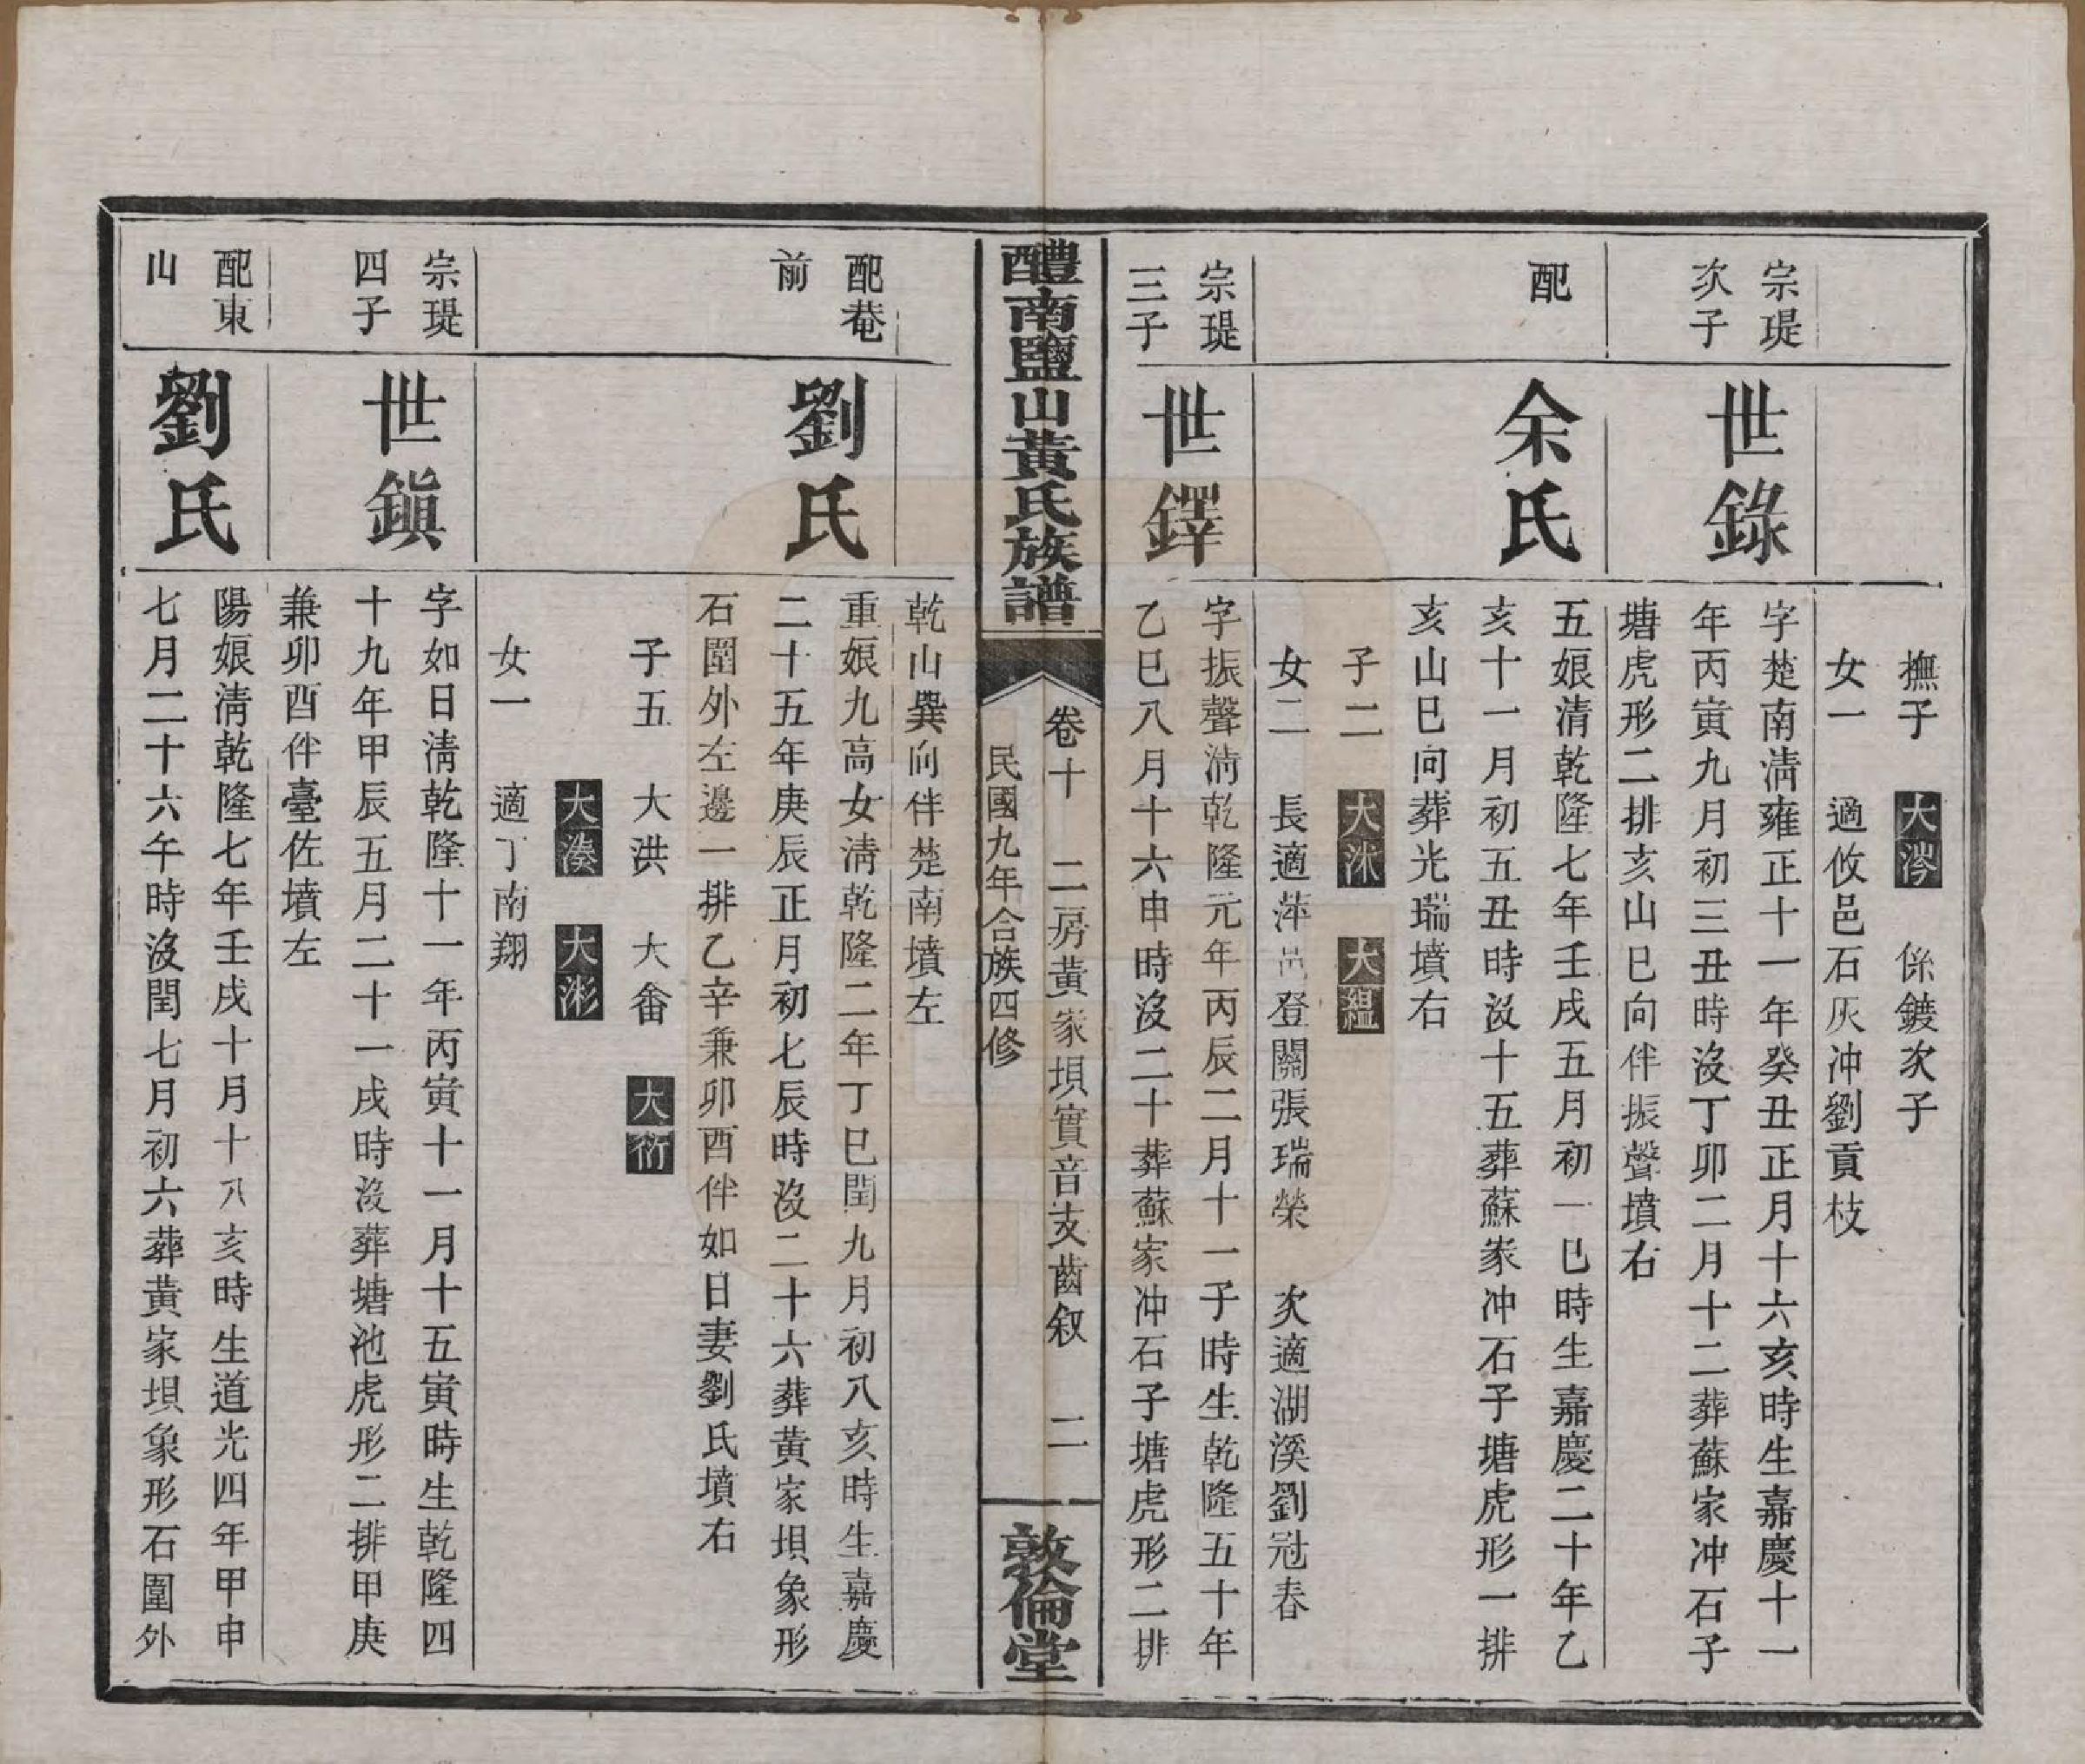 撫子　大涔　係鍍次子
女一　適攸邑石灰冲劉貢枝
宗瑅次子
世錄
字楚南淸雍正十一年癸丑正月十六亥時生嘉慶十一
年丙寅九月初三丑時沒丁卯二月十二葬蘇家冲石子
塘虎形二排亥山巳向伴振聲墳右
配
余氏
五娘清乾隆七年壬戌五月初一巳時生嘉慶二十年乙
亥十一月初五丑時沒十五葬蘇家冲石子塘虎形一排
亥山巳向葬光瑞墳右
子二　大沭　大縕
女二　長適萍邑登關張瑞榮　次適湖溪劉冠春
宗瑅三子
世鐸
字振聲淸乾隆元年丙辰二月十一子時生乾隆五十年
乙巳八月十六申時沒二十葬蘇家冲石子塘虎形二排
醴南鹽山黃氏族譜
卷十　二房黃家垻實音支齒叙　二
民國九年合族四修
敦倫堂
乾山巽向伴楚南墳左
配菴前
劉氏
重娘九高女淸乾隆二年丁巳閏九月初八亥時生嘉慶
二十五年庚辰正月初七辰時沒二十六葬黃家垻象形
石圍外左邊一排乙辛兼卯酉伴如日妻劉氏墳右
子五　大洪　大畨　大衍
大湊　大澎
女一　適丁南翔
宗瑅四子
世鎭
字如日淸乾隆十一年丙寅十一月十五寅時生乾隆四
十九年甲辰五月二十一戌時沒葬塘池虎形二排甲庚
兼卯酉伴臺佐墳左
配東山
劉氏
陽娘淸乾隆七年壬戌十月十八亥時生道光四年甲申
七月二十六午時沒閏七月初六葬黃家垻象形石圍外